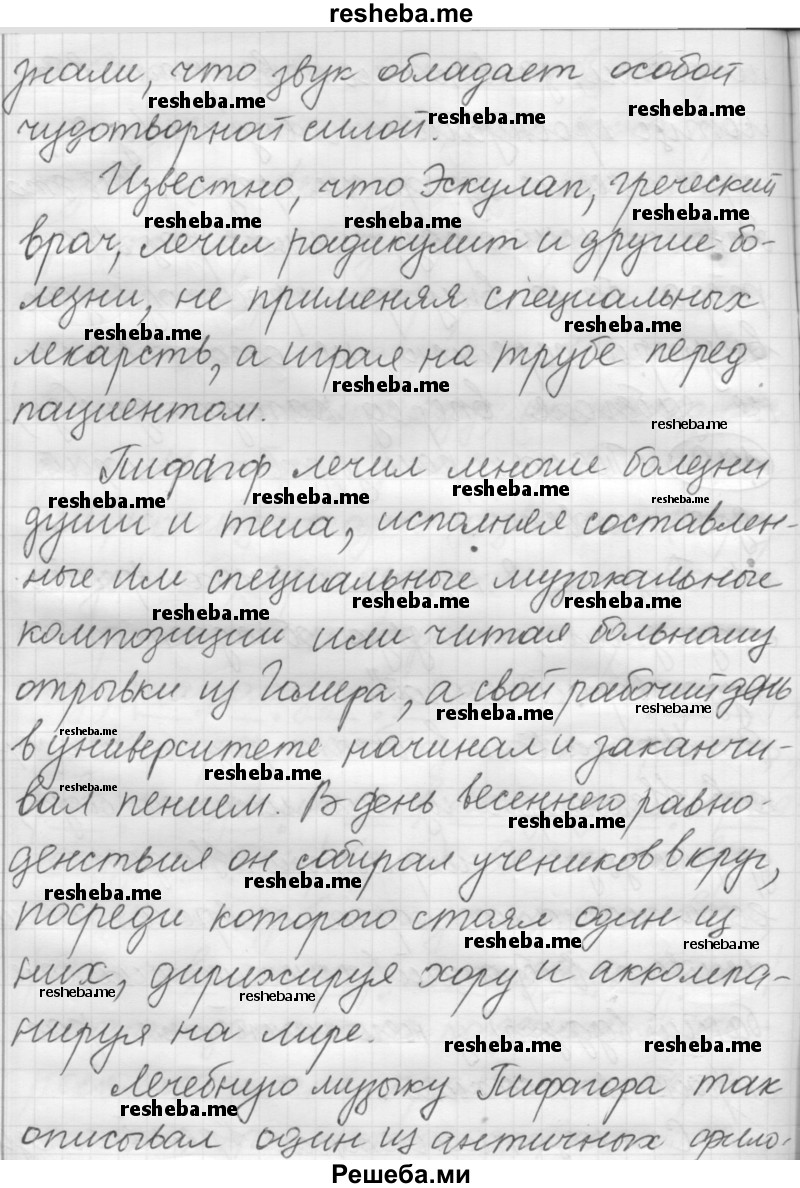 resheba.me
знали, что звук обладает особой
resheba.me resheba.me resheba.me
чудотворной силой.
Известно, что Эскулап, греческий
resheba.me resheba.me resheba.me
врач, лечил радикулит и другие бо-
лезни, не применяя специальных
resheba.me resheba.me
лекарств, а играя на трубе перед
resheba.me
пациентом.
resheba.me
Пифагор лечил многие болезни
resheba.me resheba.me resheba.me resheba.me
души и тела, исполняя составлен-
ные им специальные музыкальные
resheba.me resheba.me resheba.me
композиции или читая больному
отрывки из Гомера, а свой рабочий день
resheba.me resheba.me
resheba.me
в университете начинал и заканчи-
resheba.me resheba.me
вал пением. В день весеннего равно-
resheba.me
денствия он собирал учеников в круг,
resheba.me resheba.me
посреди которого стоял один из
resheba.me resheba.me
них, дирижируя хору и аккомпа-
resheba.me resheba.me
нируя на лире.
resheba.me resheba.me
Лечебную музыку Пифагора так
resheba.me
описывал один из античных фило-
Решеба.ми